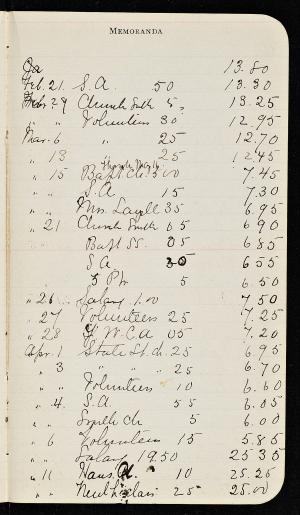 MEMORANDA
13.80
Feb. 21. S.A. 50 13.30
Feb. 29 Church Smth 5. 13.25
" " Volunteers 30 12.95
Mar. 6 " 25 12.70
" 13 25 12.45
" 15 Bapt ch 5.00 7.45
" " S.A 15 7.30
" " Mrs. Layell 35 6.95
" 21 Church Smth 05 6.90
Bapt SS. 05 6.85
S A 30 6.55
5 5 6.50
" 26 Salary 1.00 7.50
" 27 Volunteers 25 7.25
" 28 Y.W.C.A 05 7.20
Apr. 1 State St. ch. 25 6.95
" 3 " " " 25 6.70
" " Volunteers 10 6.60
" 4. S.A. 55 6.05
" " Smith Ch 5 6.00
" 6 Volunteers 15 5.85
" " Salary 19.50 25.35
" 11 Hans. 10 25.25
" " 25 25.00